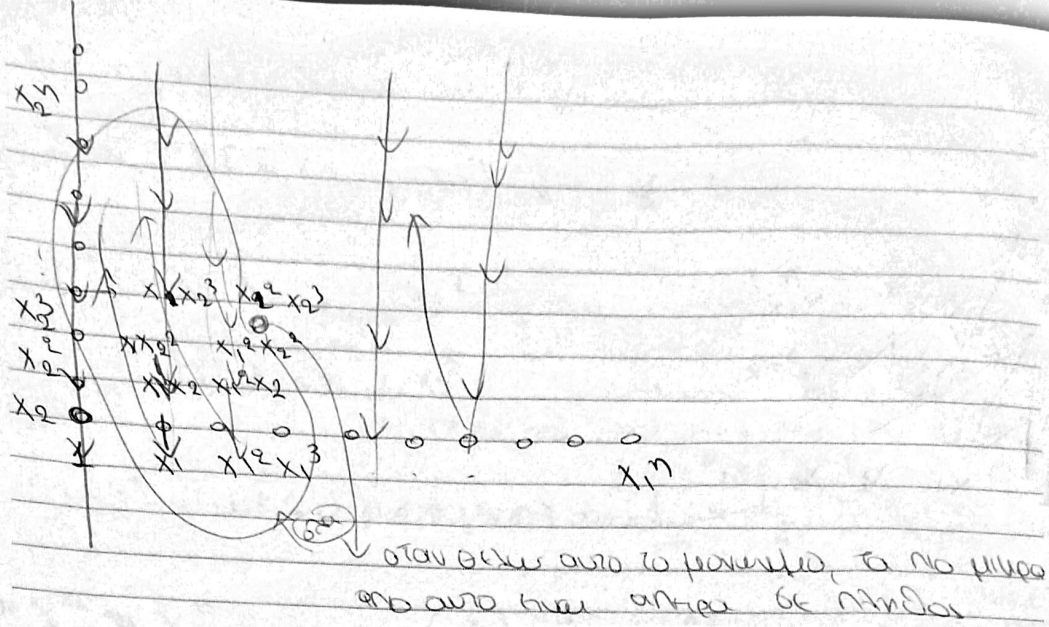 x₂ⁿ
x₂³ x₁x₂³ x₁²x₂³
x₂² x₁x₂² x₁²x₂²
x₂ x₁x₂ x₁²x₂
1 x₁ x₁² x₁³ x₁ⁿ
οταν θελω αυτο το μονωνυμο, τα πιο μικρα
απο αυτο ειναι απειρα σε πληθος